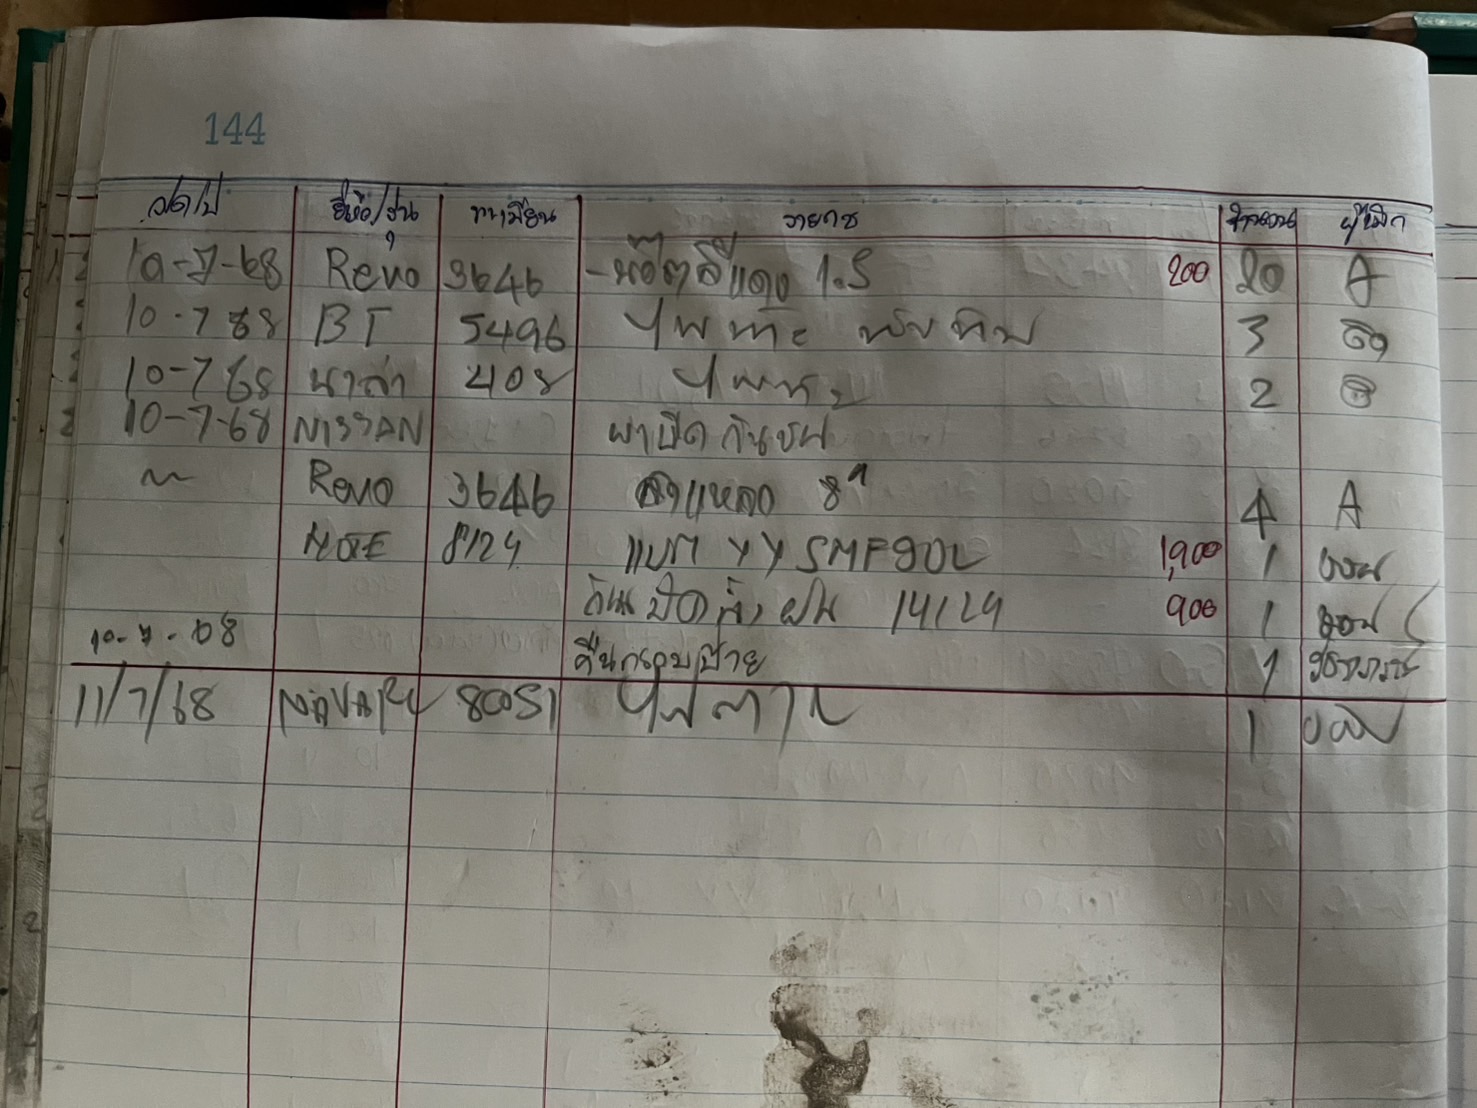 144
วดป ยี่ห้อ/รุ่น ทะเบียน รายการ จำนวน ผู้เบิก
10-7-68 Revo 3646 -น๊อตสีแดง 1.5 200 20 A
10-7 68 BT 5496 ไฟเพาะ ทับทิม 3
10-7 68 นาล่า 408 ไฟเพาะ 2
10-7-68 NISSAN ฝาปิดกันชน
Revo 3646 8" 4 A
NOTE 8124 แบต YY SMF90L 1,900 1 ออน
ก้านปัดน้ำฝน 14/24 900 1 ออน
10-7-68 คืนกรอบป้าย 1
11/7/68 NAVARA 8051 1